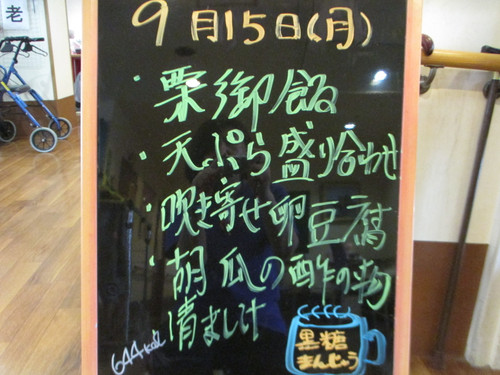 老
9月15日(月)
・栗御飯
・天ぷら盛り合わせ
・吹き寄せ卵豆腐
・胡瓜の酢の物
清まし汁
644kcal
黒糖
まんじゅう